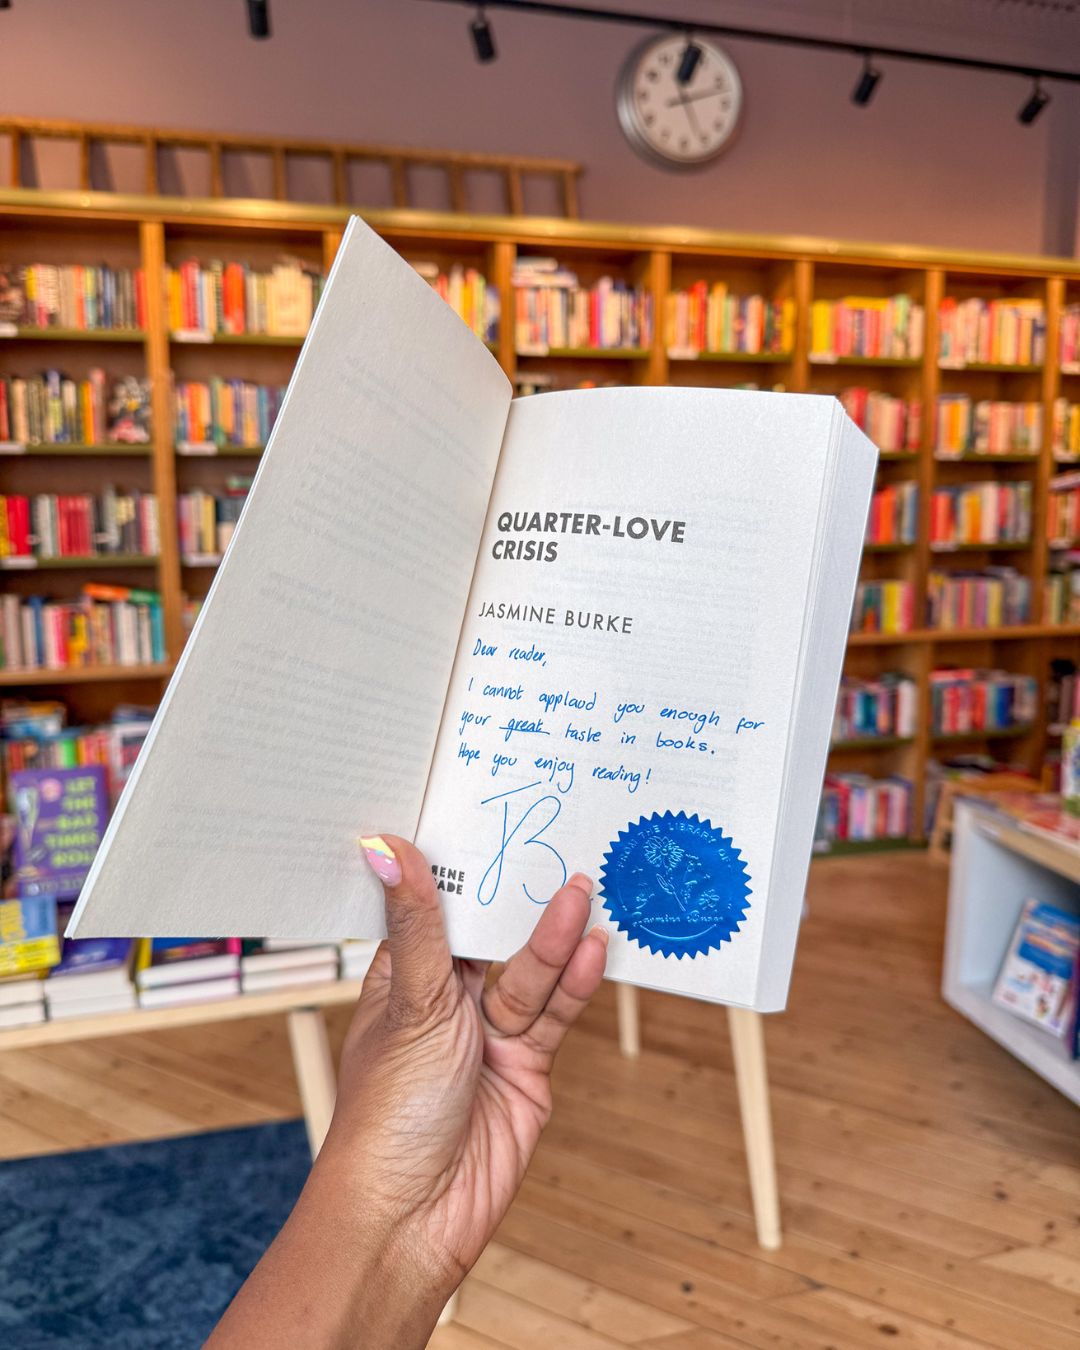 QUARTER-LOVE
CRISIS
JASMINE BURKE
Dear reader,
I cannot applaud you enough for
your great taste in books.
Hope you enjoy reading!
JB
FROM THE LIBRARY OF
Jasmine Burke
LET
THE
BAD
TIMES
ROLL